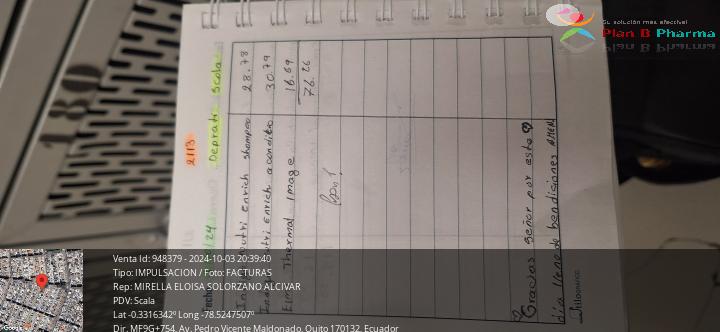 Su solución más efectiva!
Plan B Pharma
2113
24 Depratti Scola
nutri enrich shampoo 28.78
nutri enrich acondito 30.79
Thermal Image 16.69
76.26
Gracias señor por este
día lleno de bendiciones AMEN
180
Venta Id: 948379 - 2024-10-03 20:39:40
Tipo: IMPULSACION / Foto: FACTURAS
Rep: MIRELLA ELOISA SOLORZANO ALCIVAR
PDV: Scala
Lat -0.3316342° Long -78.5247507°
Dir. MF9G+754, Av. Pedro Vicente Maldonado, Quito 170132, Ecuador
Google